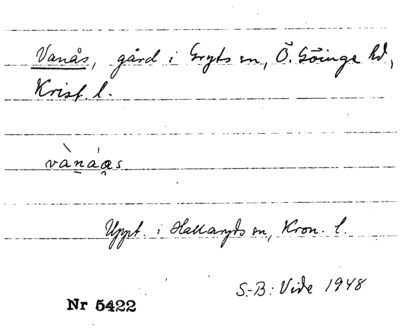 Vanås, gård i Gryts sn, Ö. Göinge hd,
Krist. l.
vànáas
Uppt. i Hallaryds sn, Kron. l.
S.-B: Vide 1948
Nr 5422